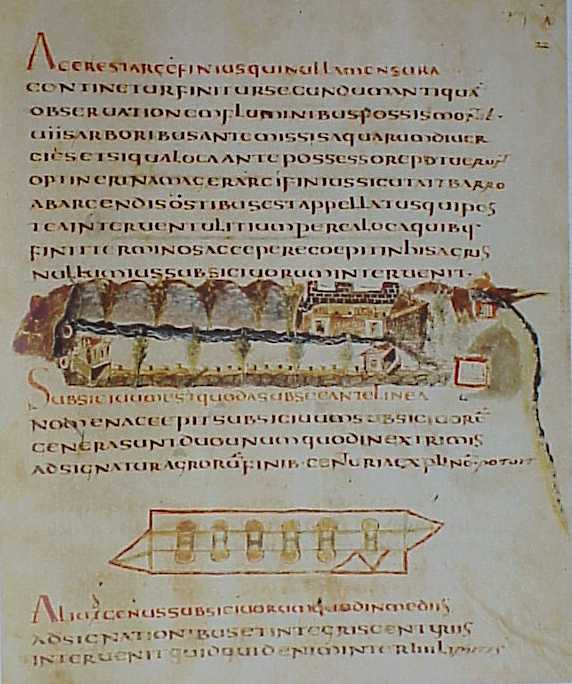 AGER EST ARCEFINIUS QUI NULLA MENSURA
CONTINETUR FINITUR SECUNDUM ANTIQUĀ
OBSERUATIONEM FLUMINIBUS FOSSIS
UIIS ARBORIBUS ANTE MISSIS AQUARUM DIUER
GIIS ET SI QUA LOCA ANTE POSSESSORE POTUERUNT
OPTINERI NAM AGER ARCIFINIUS SICUT AIT BARRO
AB ARCENDIS OSTIBUS EST APPELLATUS QUI POS
TEA INTERUENTU LITIUM PER EA LOCA QUIBQ
FINIT TERMINOS ACCEPERE COEPIT IN HIS AGRIS
NULLUM IUS SUBSICIUORUM INTERUENIT·
SUBSICIUUM EST QUOD A SUBSECANTE LINEA
NOMEN ACCEPIT SUBSICIUUM SUBSICIUORŪ
GENERA SUNT DUO UNUM QUOD IN EXTRIMIS
ADSIGNATUR AGRORŪ FINIB· CENTURIA EXPLERI NŌ POTUIT
ALIUT GENUS SUBSICIUORUM QUOD IN MEDIIS
ADSIGNATIONIBUS ET INTEGRIS CENTURIIS
INTERUENIT QUIDQUID ENIM INTER